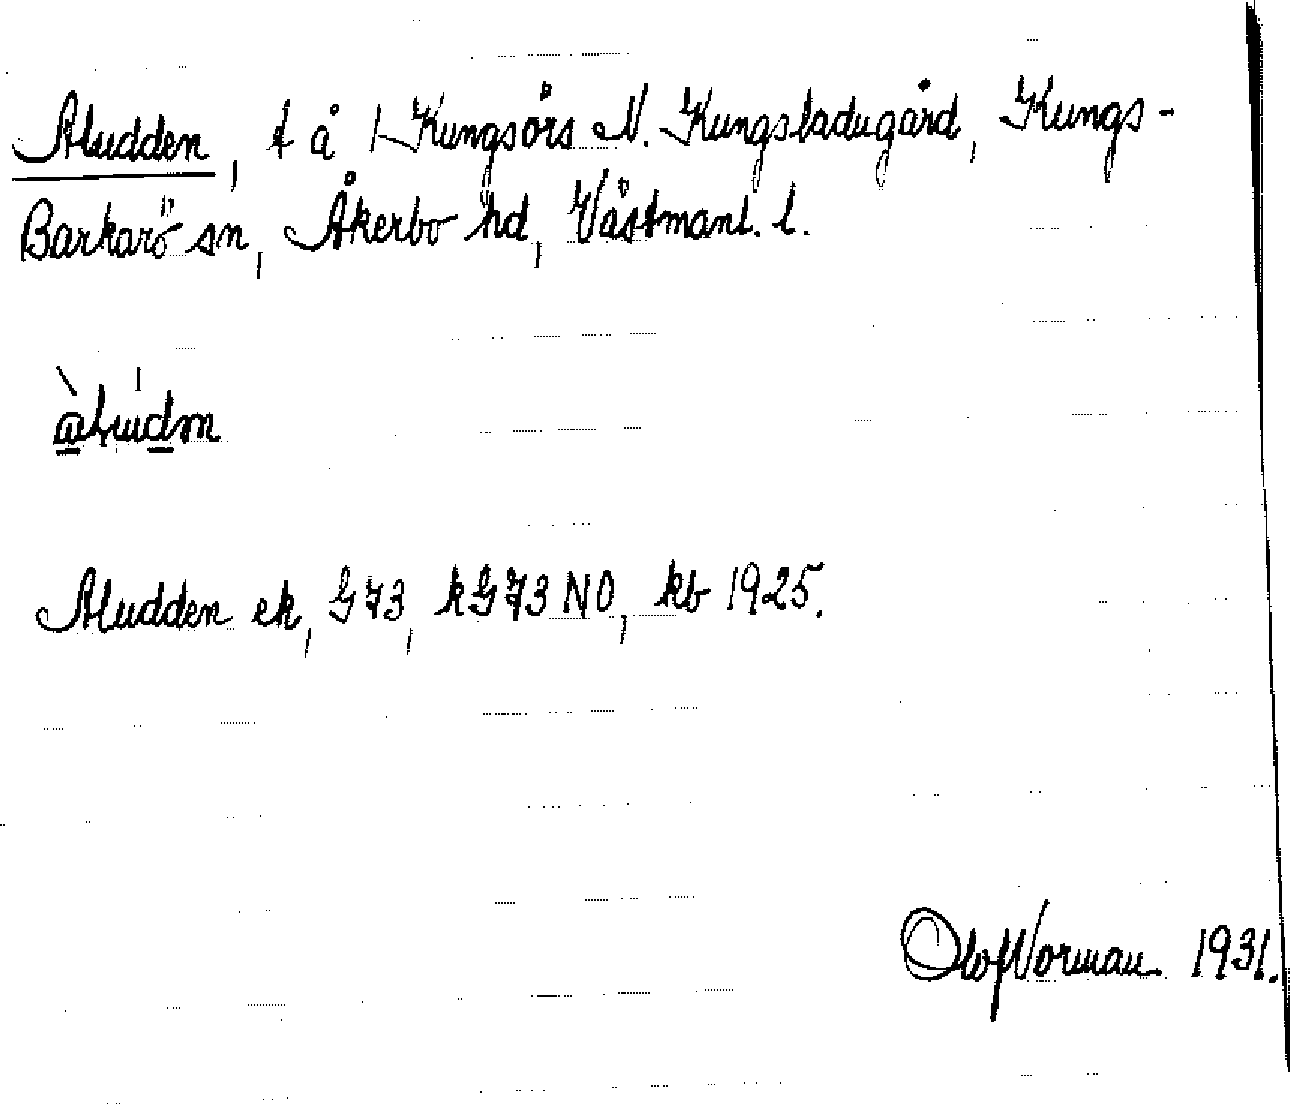 Aludden, t å 1 Kungsörs N. Kungsladugård, Kungs-
Barkarö sn, Åkerbo hd, Västmanl. l.
Aludden ek, G73, kG73NO, kb 1925.
Olof Norman 1931.